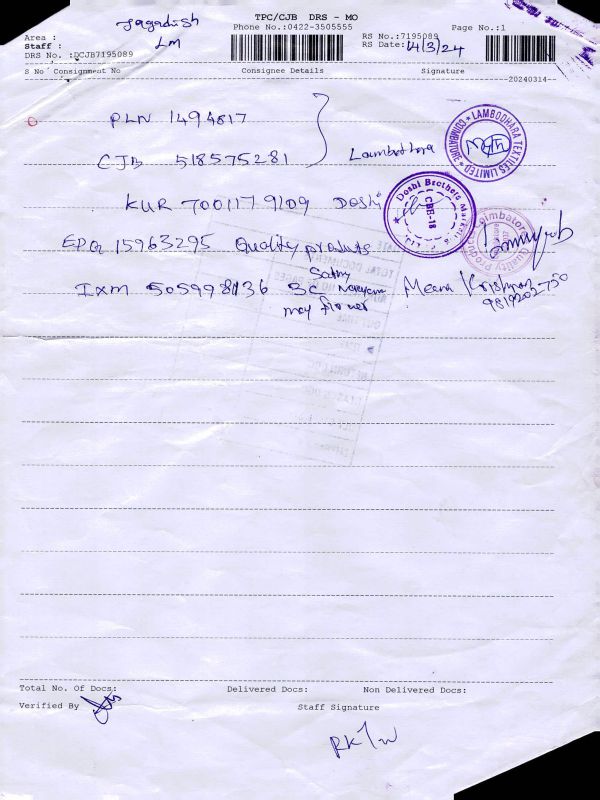 TPC/CJB DRS - MO
Jagadish
LM
Phone No.:0422-3505555
Page No.:1
Area :
Staff :
DRS No. :DCJB7195089
RS No.:7195089
RS Date: 14/3/24
S No Consignment No Consignee Details Signature
20240314
PLN 1494817
CJB 518575281 Lambothra
LAMBODHARA TEXTILES LIMITED * COIMBATORE *
KUR 7001179109 Doshi
Doshi Brothers
CBE-18
EDQ 15963295 Quality products
Coimbatore Quality Products
IXM 505998136 3C
may flower
Meena Krishnan
9819202750
TOTAL DOCUMENT
Total No. Of Docs: Delivered Docs: Non Delivered Docs:
Verified By Staff Signature